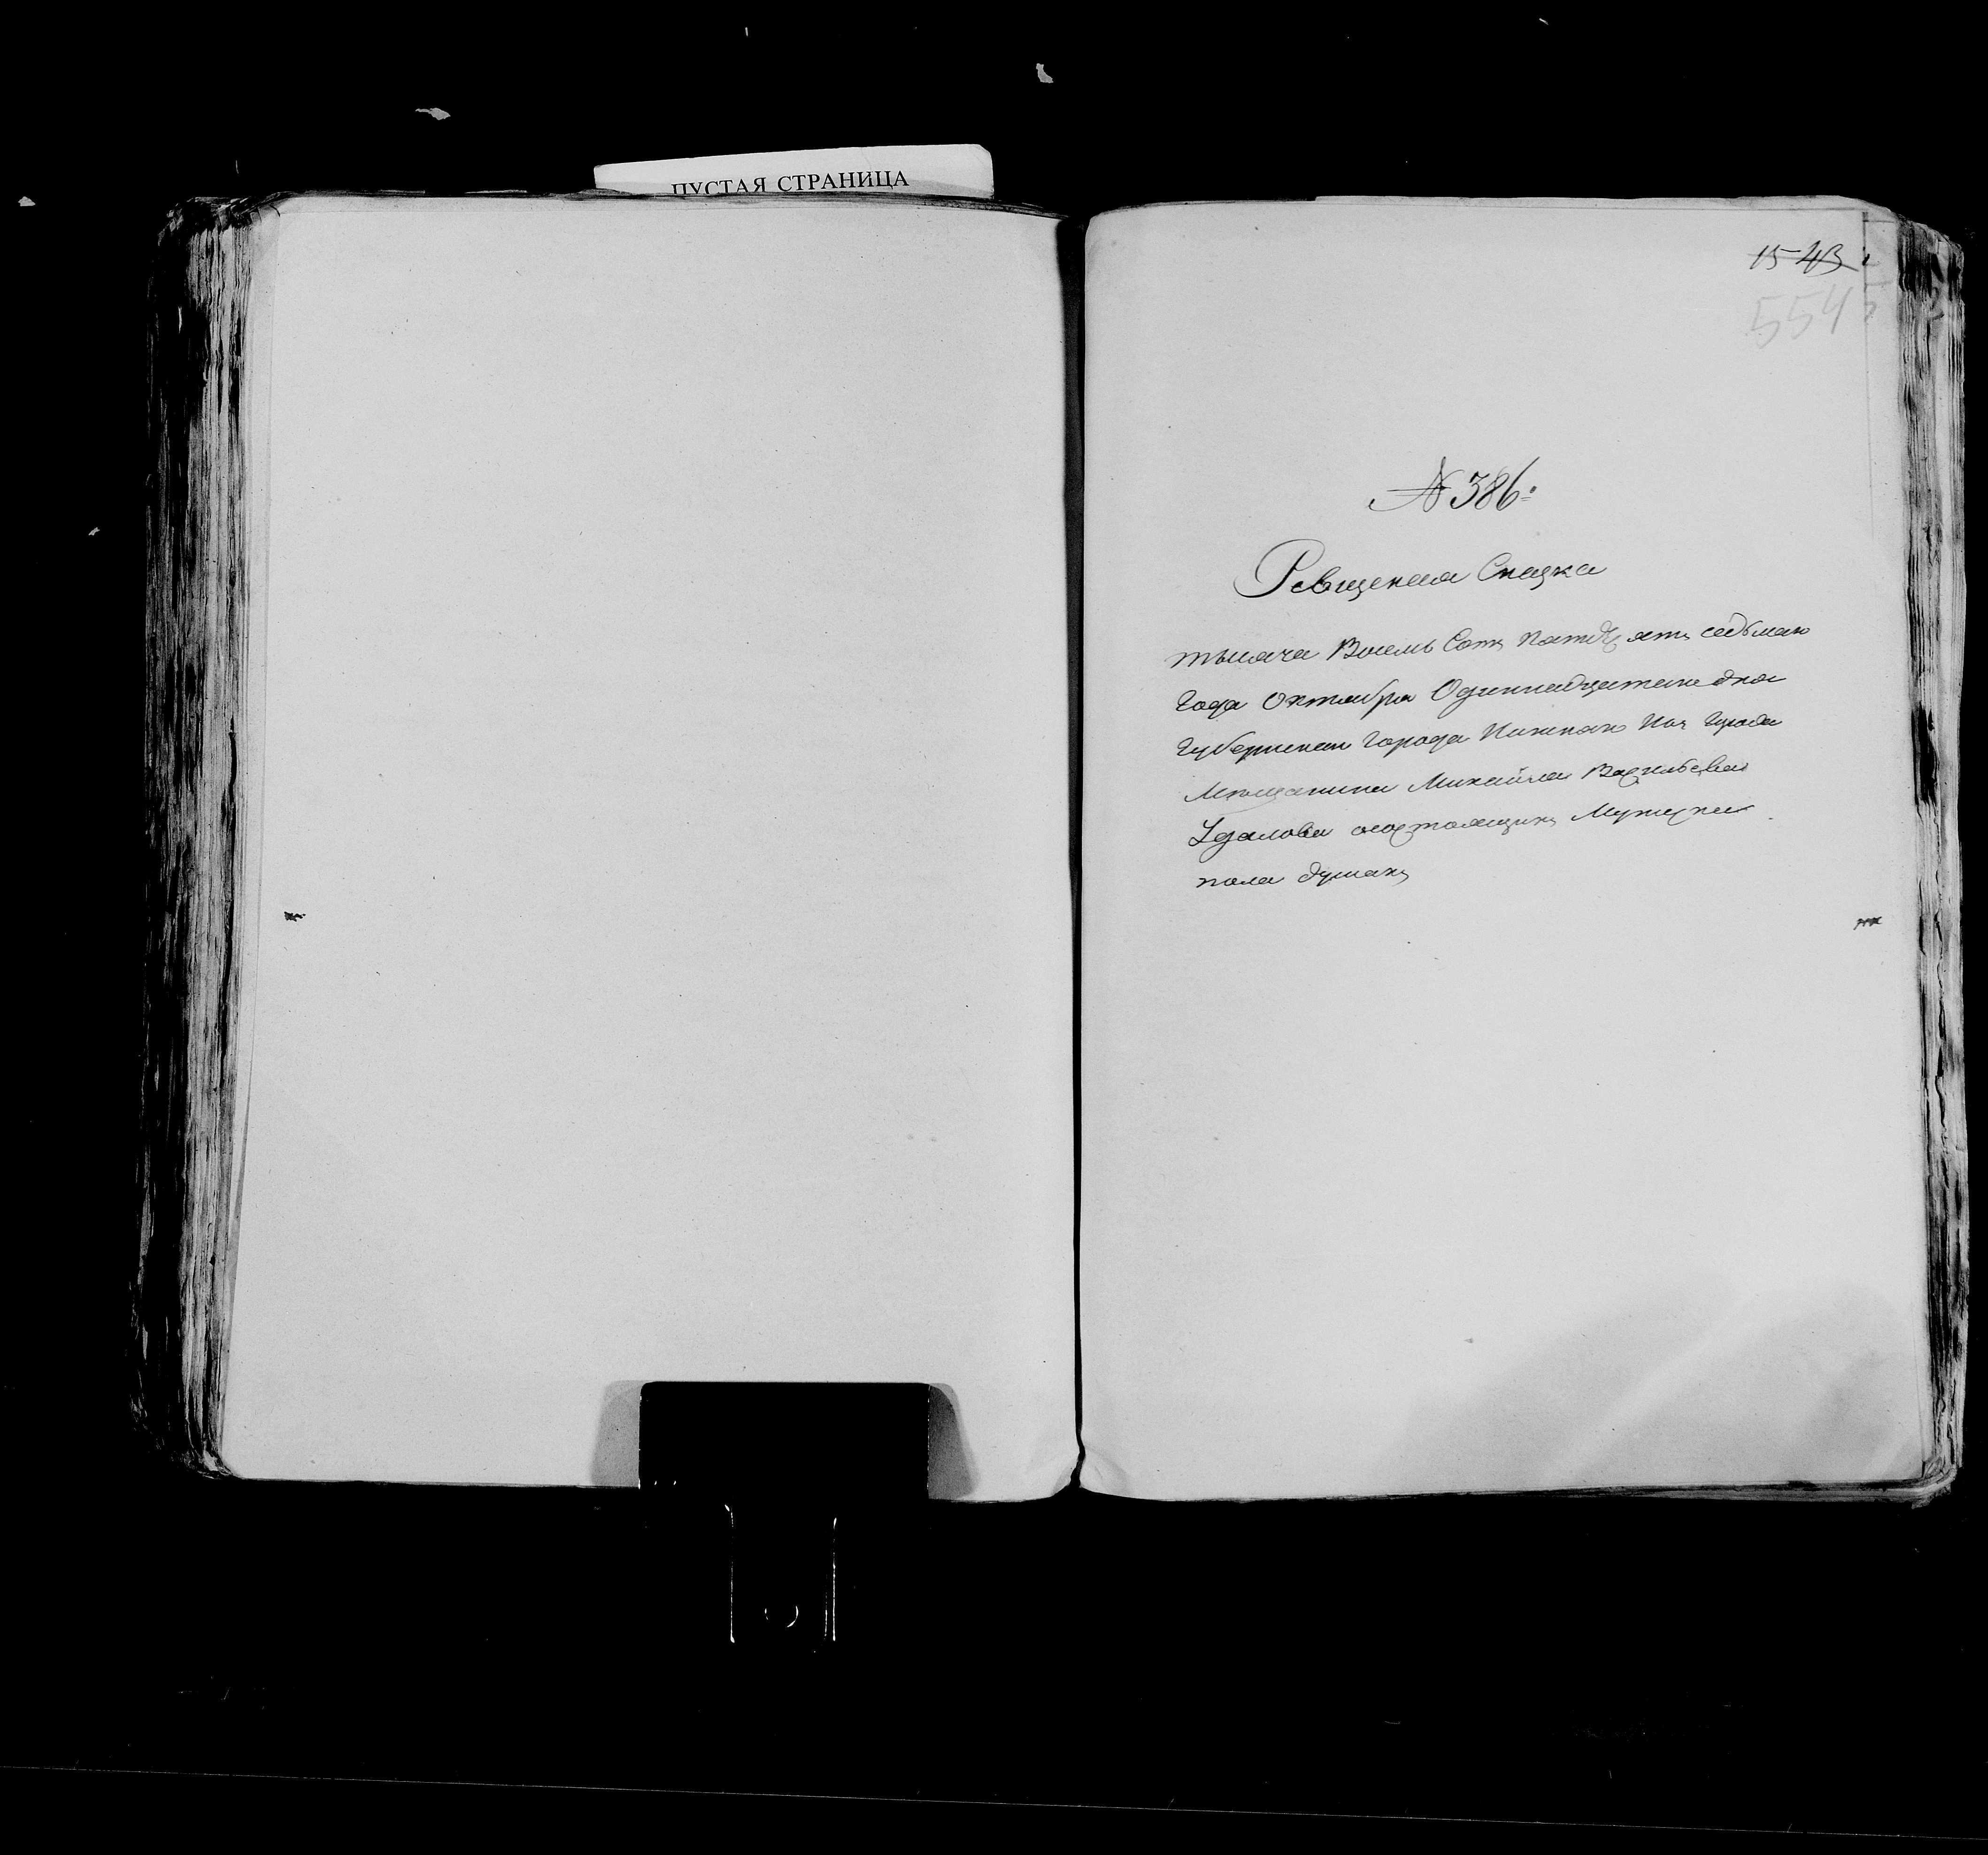 ПУСТАЯ СТРАНИЦА
1543
554
№ 386:
Ревиская Сказка
тысяча Восемь Сотъ пятдесятъ седьмаго
Года Октября Одиннадцатаго дня
Губернскаго Города Нижняго Нов Города
Мещанина Михайла Васильева
Удалова состоящихъ Мужеска
пола душахъ